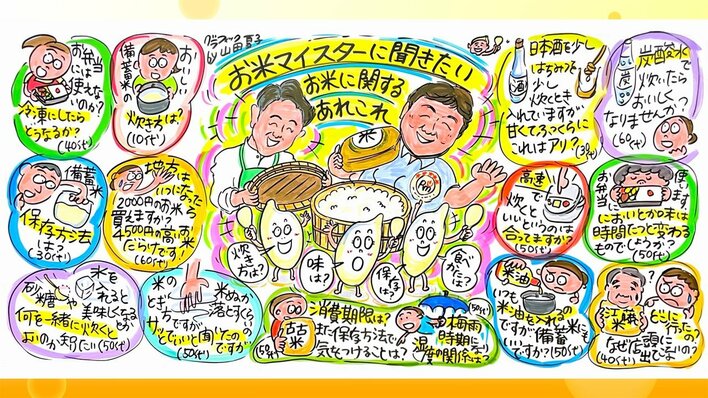 グラフィック
by 山田夏子
お米マイスターに聞きたい
お米に関する
あれこれ
米
炊き方は?
味は?
保存は?
食べ方は?
お弁当
には
使えな
いのか?
冷凍にしたら
どうなるか?
(40代)
おいしい
備蓄米の
炊き方は?
(10代)
日本酒を少し
はちみつを
少し
炊くとき
入れていますが
甘くてふっくらに
これはアリ?
炭酸水で
炊いたら
おいしく
なりませんか?
(60代)
備蓄米
保存方法
は?
(30代)
地方は
いつになったら
2000円のお米
買えますか?
4500円の高いお米
だらけです!
(60代)
高速で
炊くと
いいというのは
合ってますか?
(50代)
お弁当に
使ってます
においとか味は
時間たつと変わる
ものでしょうか?
(50代)
米を
砂糖や
入れると
美味しくなるとか
何を一緒に炊くと
よいのか知りたい(50代)
米の
とぎ方ですが
米ぬか
落とすくらい
サッとでいいと聞いたのですが
(50代)
消費期限は?
古古米
また保存方法で
気をつけることは?
(50代)
梅雨
時期になり
湿度の関係は?
(50代)
米油
いつも
米油を入れるの
ですが備蓄米にも
いいですか?(50代)
江藤米
どこに
行ったの
でしょうか?
なぜ店頭に
出てないの?
(40代)